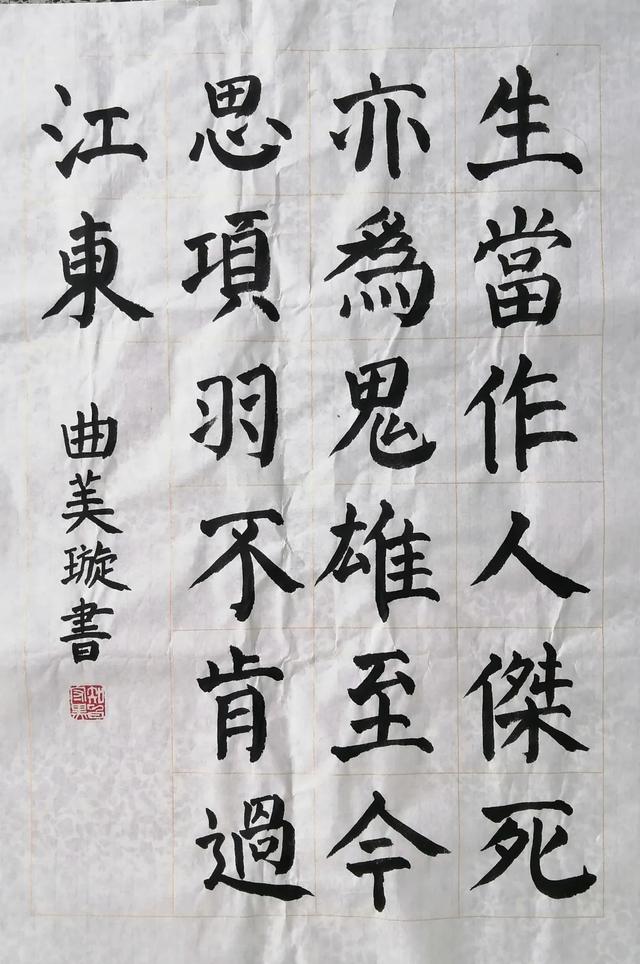 生當作人傑死
亦為鬼雄至今
思項羽不肯過
江東
曲美璇書